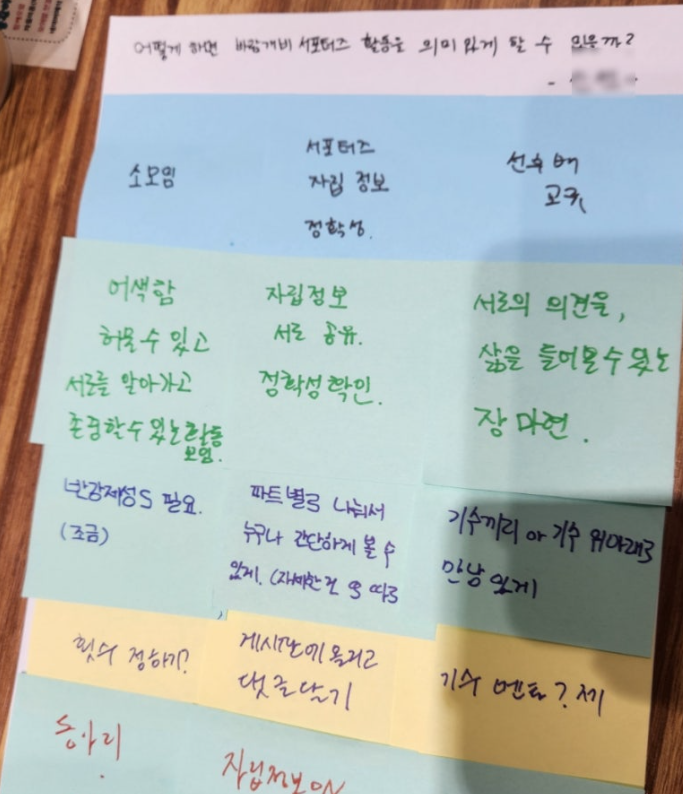 어떻게 하면 바람개비 서포터즈 활동을 의미 있게 할 수 있을까?
소모임
서포터즈
자립 정보
정확성.
선후배
교류
어색함
허물 수 있고
서로를 알아가고
존중할 수 있는 활동
모임.
자립정보
서로 공유.
정확성 확인.
서로의 의견을,
삶을 들어볼 수 있는
장 마련.
반강제성 필요.
(조금)
파트별로 나눠서
누구나 간단하게 볼 수
있게. (자세한 건 따로
기수끼리 아 기수 위아래로
만남 있게
횟수 정하기?
게시판에 올리고
댓글달기
기수 멘토? 제
동아리
자립정보